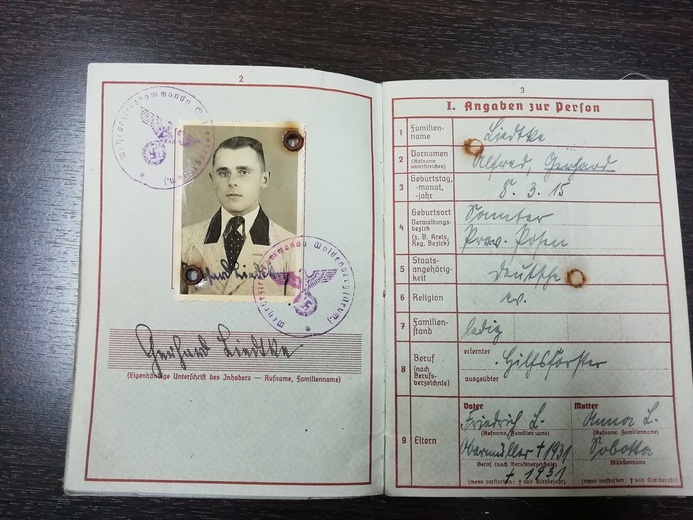 2
Wehrbezirkskommando
Gerhard Liedtke
Wehrbezirkskommando Waldenburg
Gerhard Liedtke
(Eigenhändige Unterschrift des Inhabers — Rufname, Familienname)
3
I. Angaben zur Person
1 Familien-
name
Liedtke
2 Vornamen
(Rufname
unterstreichen)
Alfred, Gerhard
3 Geburtstag,
-monat,
-jahr
5. 3. 15
4 Geburtsort
Verwaltungs-
bezirk
(z. B. Kreis,
Reg. Bezirk)
Samter
Prov. Posen
5 Staats-
angehörig-
keit
deutsche
6 Religion
ev.
7 Familien-
stand
ledig
8 Beruf
(nach
Berufs-
verzeichnis)
erlernter
Hilfsförster
ausgeübter
9 Eltern
Vater
Friedrich L.
(Rufname, Familienname)
Obermüller † 1931
Beruf (nach Berufsverzeichnis)
† 1931
(wenn verstorben: † und Sterbejahr)
Mutter
Anna L.
(Rufname, Familienname)
Sobotta
Mädchenname
(wenn verstorben: † und Sterbejahr)